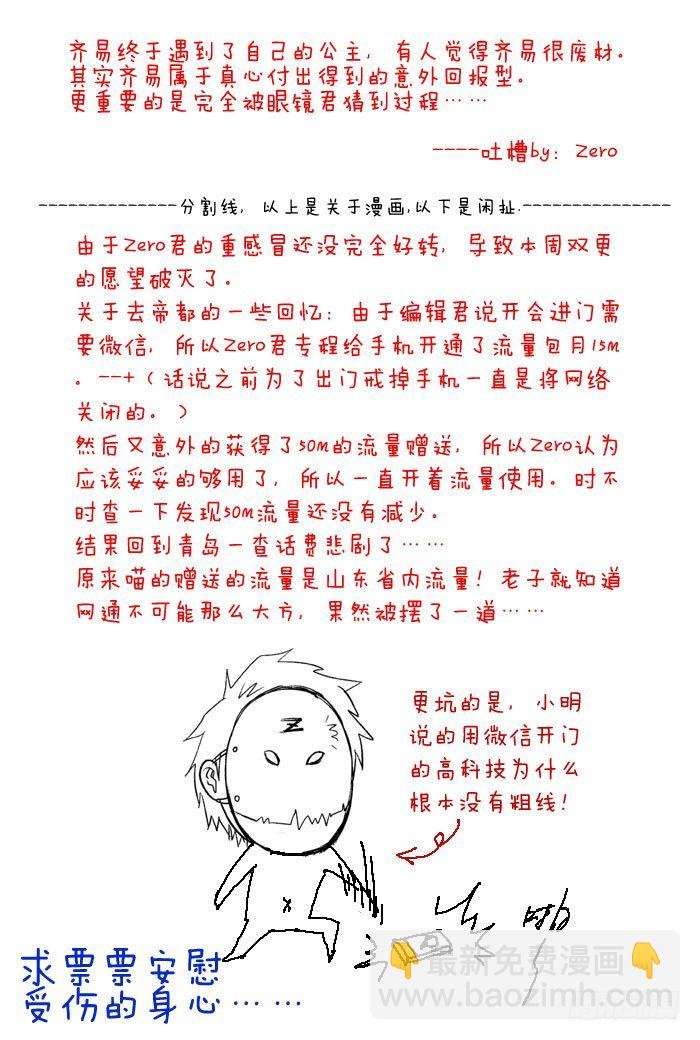 齐易终于遇到了自己的公主，有人觉得齐易很废材。
其实齐易属于真心付出得到的意外回报型。
更重要的是完全被眼镜君猜到过程……
----吐槽by：Zero
--------------分割线，以上是关于漫画,以下是闲扯.---------------
由于Zero君的重感冒还没完全好转，导致本周双更
的愿望破灭了。
关于去帝都的一些回忆：由于编辑君说开会进门需
要微信，所以Zero君专程给手机开通了流量包月15m
。--+（话说之前为了出门戒掉手机一直是将网络
关闭的。）
然后又意外的获得了50M的流量赠送，所以Zero认为
应该妥妥的够用了，所以一直开着流量使用。时不
时查一下发现50M流量还没有减少。
结果回到青岛一查话费悲剧了……
原来喵的赠送的流量是山东省内流量！老子就知道
网通不可能那么大方，果然被摆了一道……
更坑的是，小明
说的用微信开门
的高科技为什么
根本没有粗线！
Z
求票票安慰
受伤的身心……
👇最新免费漫画👇
www.baozimh.com